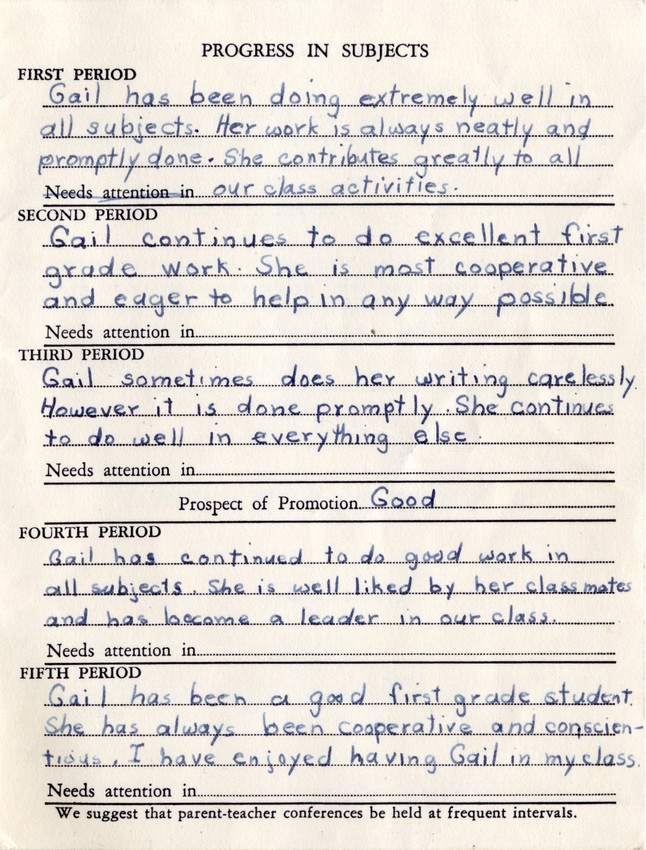 PROGRESS IN SUBJECTS
FIRST PERIOD
Gail has been doing extremely well in
all subjects. Her work is always neatly and
promptly done. She contributes greatly to all
Needs attention in our class activities.
SECOND PERIOD
Gail continues to do excellent first
grade work. She is most cooperative
and eager to help in any way possible
Needs attention in
THIRD PERIOD
Gail sometimes does her writing carelessly.
However it is done promptly. She continues
to do well in everything else.
Needs attention in
Prospect of Promotion Good
FOURTH PERIOD
Gail has continued to do good work in
all subjects. She is well liked by her classmates
and has become a leader in our class.
Needs attention in
FIFTH PERIOD
Gail has been a good first grade student.
She has always been cooperative and conscien-
tious. I have enjoyed having Gail in my class.
Needs attention in
We suggest that parent-teacher conferences be held at frequent intervals.